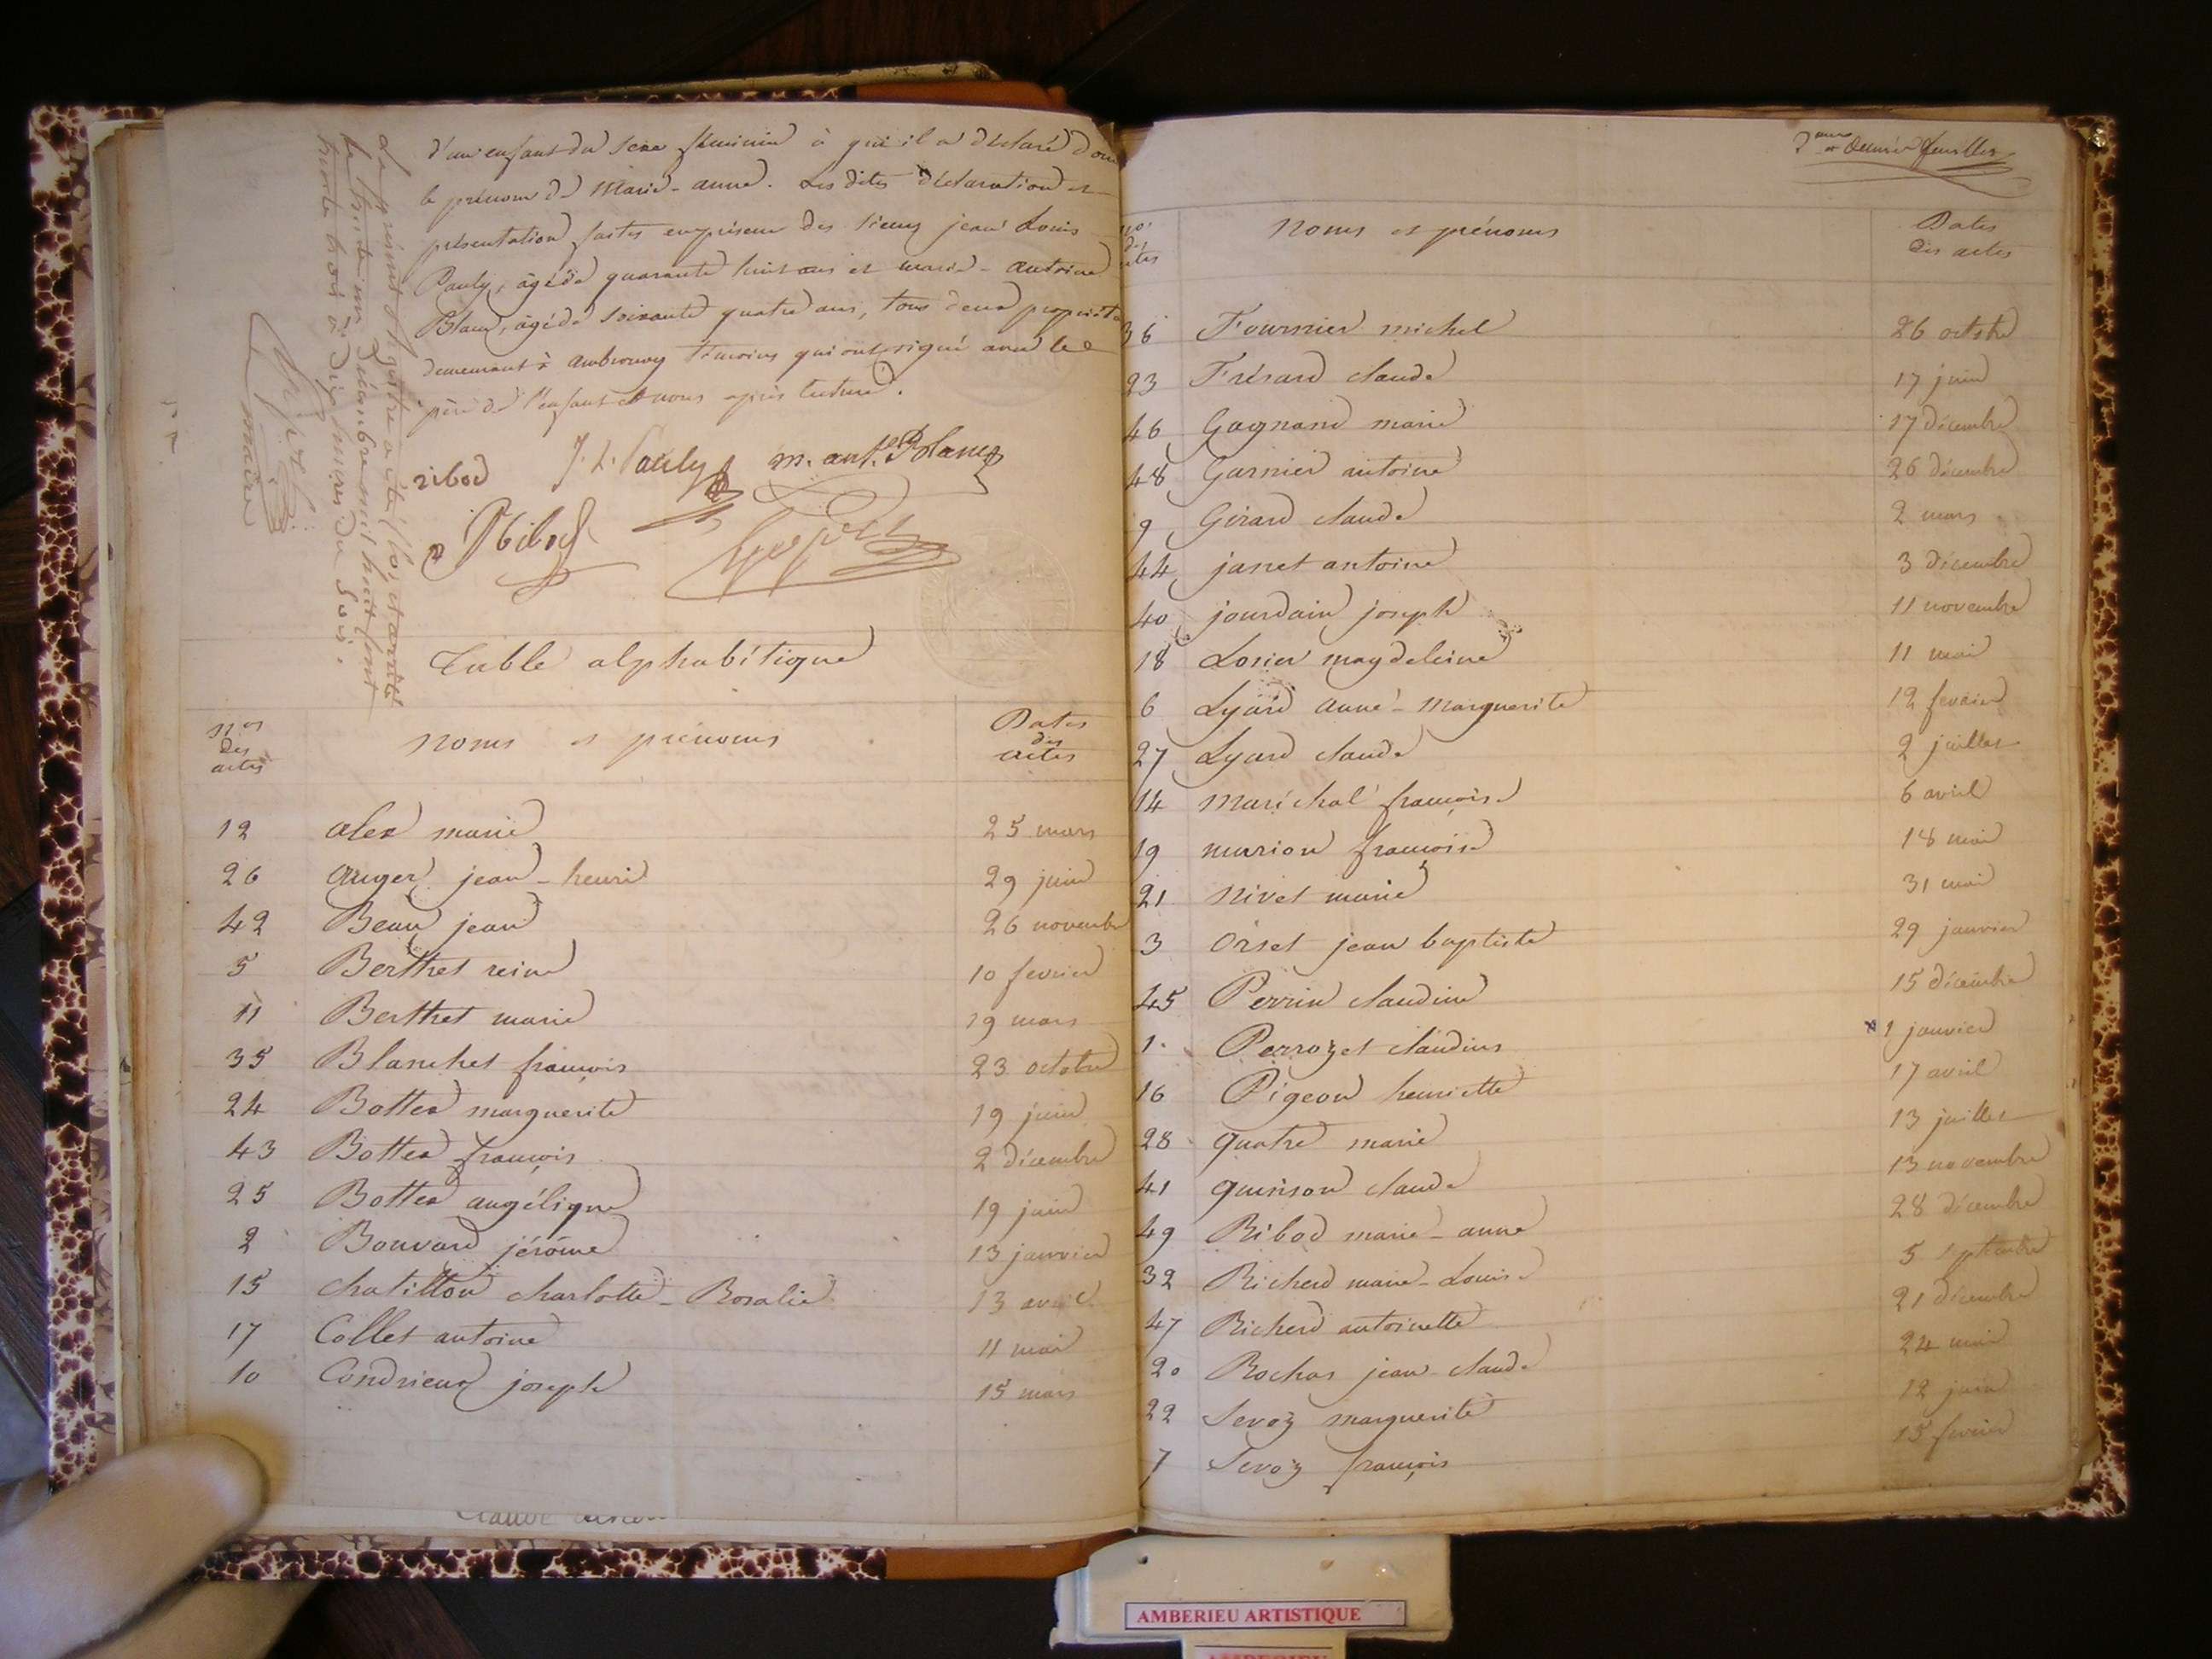 d'un enfant du sexe féminin à qui il a déclaré don
le prénom de Marie-anne. Les dites déclaration et
présentation faites en présence des sieurs jean Louis
Pauly, âgé de quarante huit ans et marie-antoine
Blanc, âgé de soixante quatre ans, tous deux propriéta
demeurant à ambronay témoins qui ont signé avec le
père de l'enfant et nous après lecture.
ribod J. L. Pauly m. ant. Blanc
Ribod
Le présent registre a été clos et arrêté
le trente un décembre mil huit cent
trente trois à dix heures du soir.
maire
Table alphabétique
nos des actes
noms et prénoms
Dates des actes
12 alex marie 25 mars
26 auger jean-henri 29 juin
42 Beau jean 26 novembre
5 Berthet reine 10 fevrier
11 Berthet marie 19 mars
35 Blanchet françois 23 octobre
24 Bottex marguerite 19 juin
43 Bottex françois 2 décembre
25 Bottex angélique 19 juin
2 Bouvard jérôme 13 janvier
15 chatillon charlotte-Rosalie 13 avril
17 Collet antoine 11 mai
10 Condrieux joseph 15 mars
2me et dernier feuillet
nos des actes
noms et prénoms
Dates des actes
36 Fournier michel 26 octobre
23 Frérard claude 17 juin
46 Gagnand marie 17 décembre
48 Garnier antoine 26 décembre
9 Gérard claude 2 mars
44 janet antoine 3 décembre
40 jourdain joseph 11 novembre
18 Losier magdeleine 11 mai
6 Lyard anne-Marguerite 12 fevrier
27 Lyard claude 2 juillet
14 Maréchal françoise 6 avril
19 murion françoise 18 mai
21 Nivet marie 31 mai
3 Orset jean baptiste 29 janvier
45 Perrin claudine 15 décembre
1 Perrozet claudius 1 janvier
16 Pigeon henriette 17 avril
28 quatre marie 13 juillet
41 quinson claude 13 novembre
49 Ribod marie-anne 28 décembre
32 Richerd marie-Louise 5 septembre
47 Richerd antoinette 21 décembre
20 Rochas jean-claude 24 mai
22 Sevoz marguerite 12 juin
7 Sevoz françois 15 fevrier
AMBERIEU ARTISTIQUE